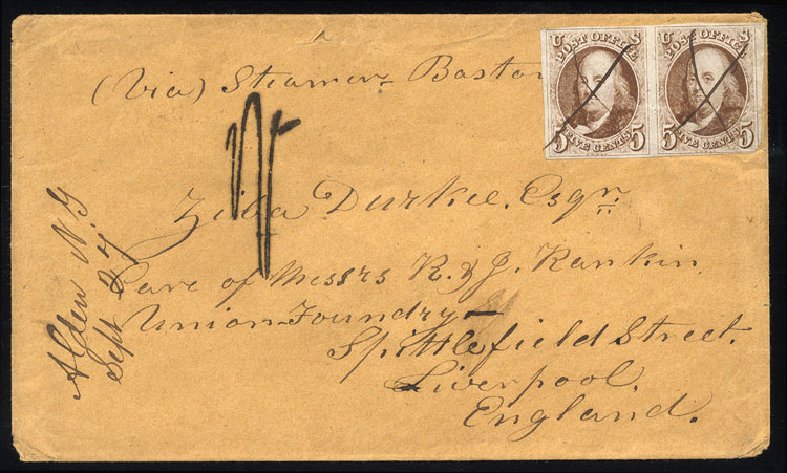 U S
POST OFFICE
FIVE CENTS
5 5
U S
POST OFFICE
FIVE CENTS
5 5
(Via) Steamer Boston
Ziba Durkee, Esqr.
Care of Messrs R. & J. Rankin
Union Foundry
Spittlefield Street.
Liverpool.
England.
Alden N.Y
Sept 27